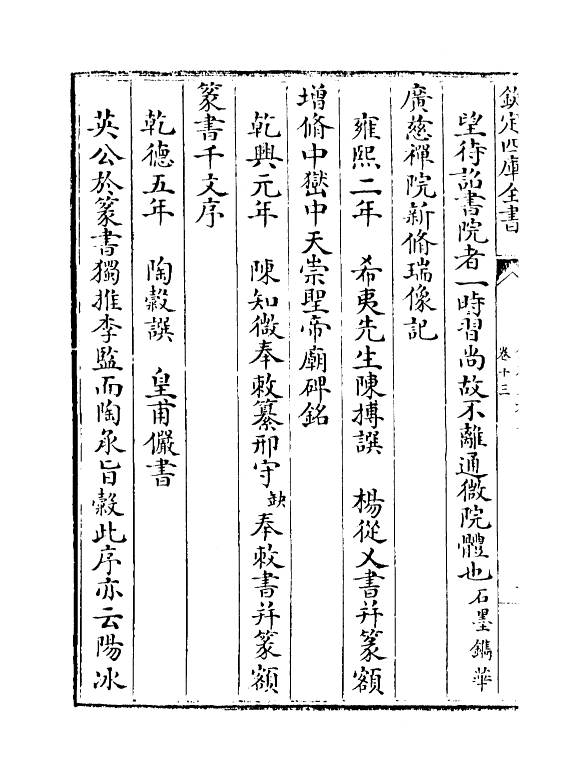 欽定四庫全書
卷十三
望待詔書院者一時習尚故不離通微院體也石墨鐫華
廣慈禪院新脩瑞像記
雍熙二年　希夷先生陳摶譔　楊從乂書幷篆額
增脩中嶽中天崇聖帝廟碑銘
乾興元年　陳知微奉敕纂邢守缺奉敕書幷篆額
篆書千文序
乾德五年　陶穀譔　皇甫儼書
英公於篆書獨推李監而陶承旨穀此序亦云陽冰